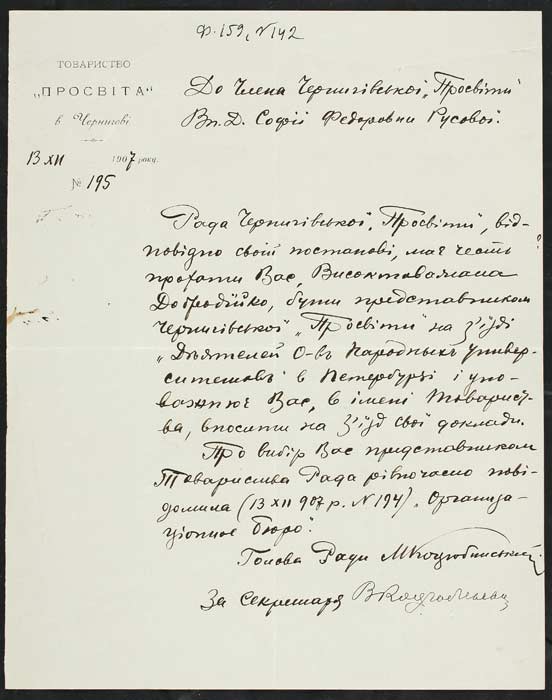 Ф. 159, N 142
ТОВАРИСТВО
„ПРОСВІТА"
в Чернигові
13 XII 1907 року.
№ 195
До Члена Чернигівської „Просвіти"
Вп. Д. Софії Федоровни Русової.
Рада Чернигівської „Просвіти", від-
повідно своїй постанові, має честь
прохати Вас, Високоповажана
Добродійко, бути представником
Чернигівської „Просвіти" на з'їзді
„Дѣятелей О-въ Народныхъ Универ-
ситетовъ" в Петербурзі і упо-
важнює Вас, в імені Товарист-
ва, вносити на з'їзд свої доклади.
Про вибір Вас представником
Товариства Рада рівночасно пові-
домила (13 XII 907 р. N 194) „Організа-
ціонное Бюро".
Голова Ради М Коцюбинський
За Секретаря В Коцюбинська